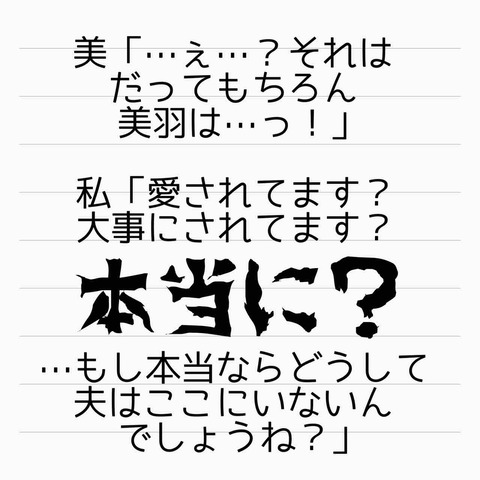 美「…ぇ…？それは
だってもちろん
美羽は…っ！」
私「愛されてます？
大事にされてます？
本当に？
…もし本当ならどうして
夫はここにいないん
でしょうね？」